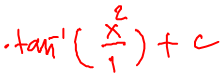 · tan⁻¹ (x²/1) + c